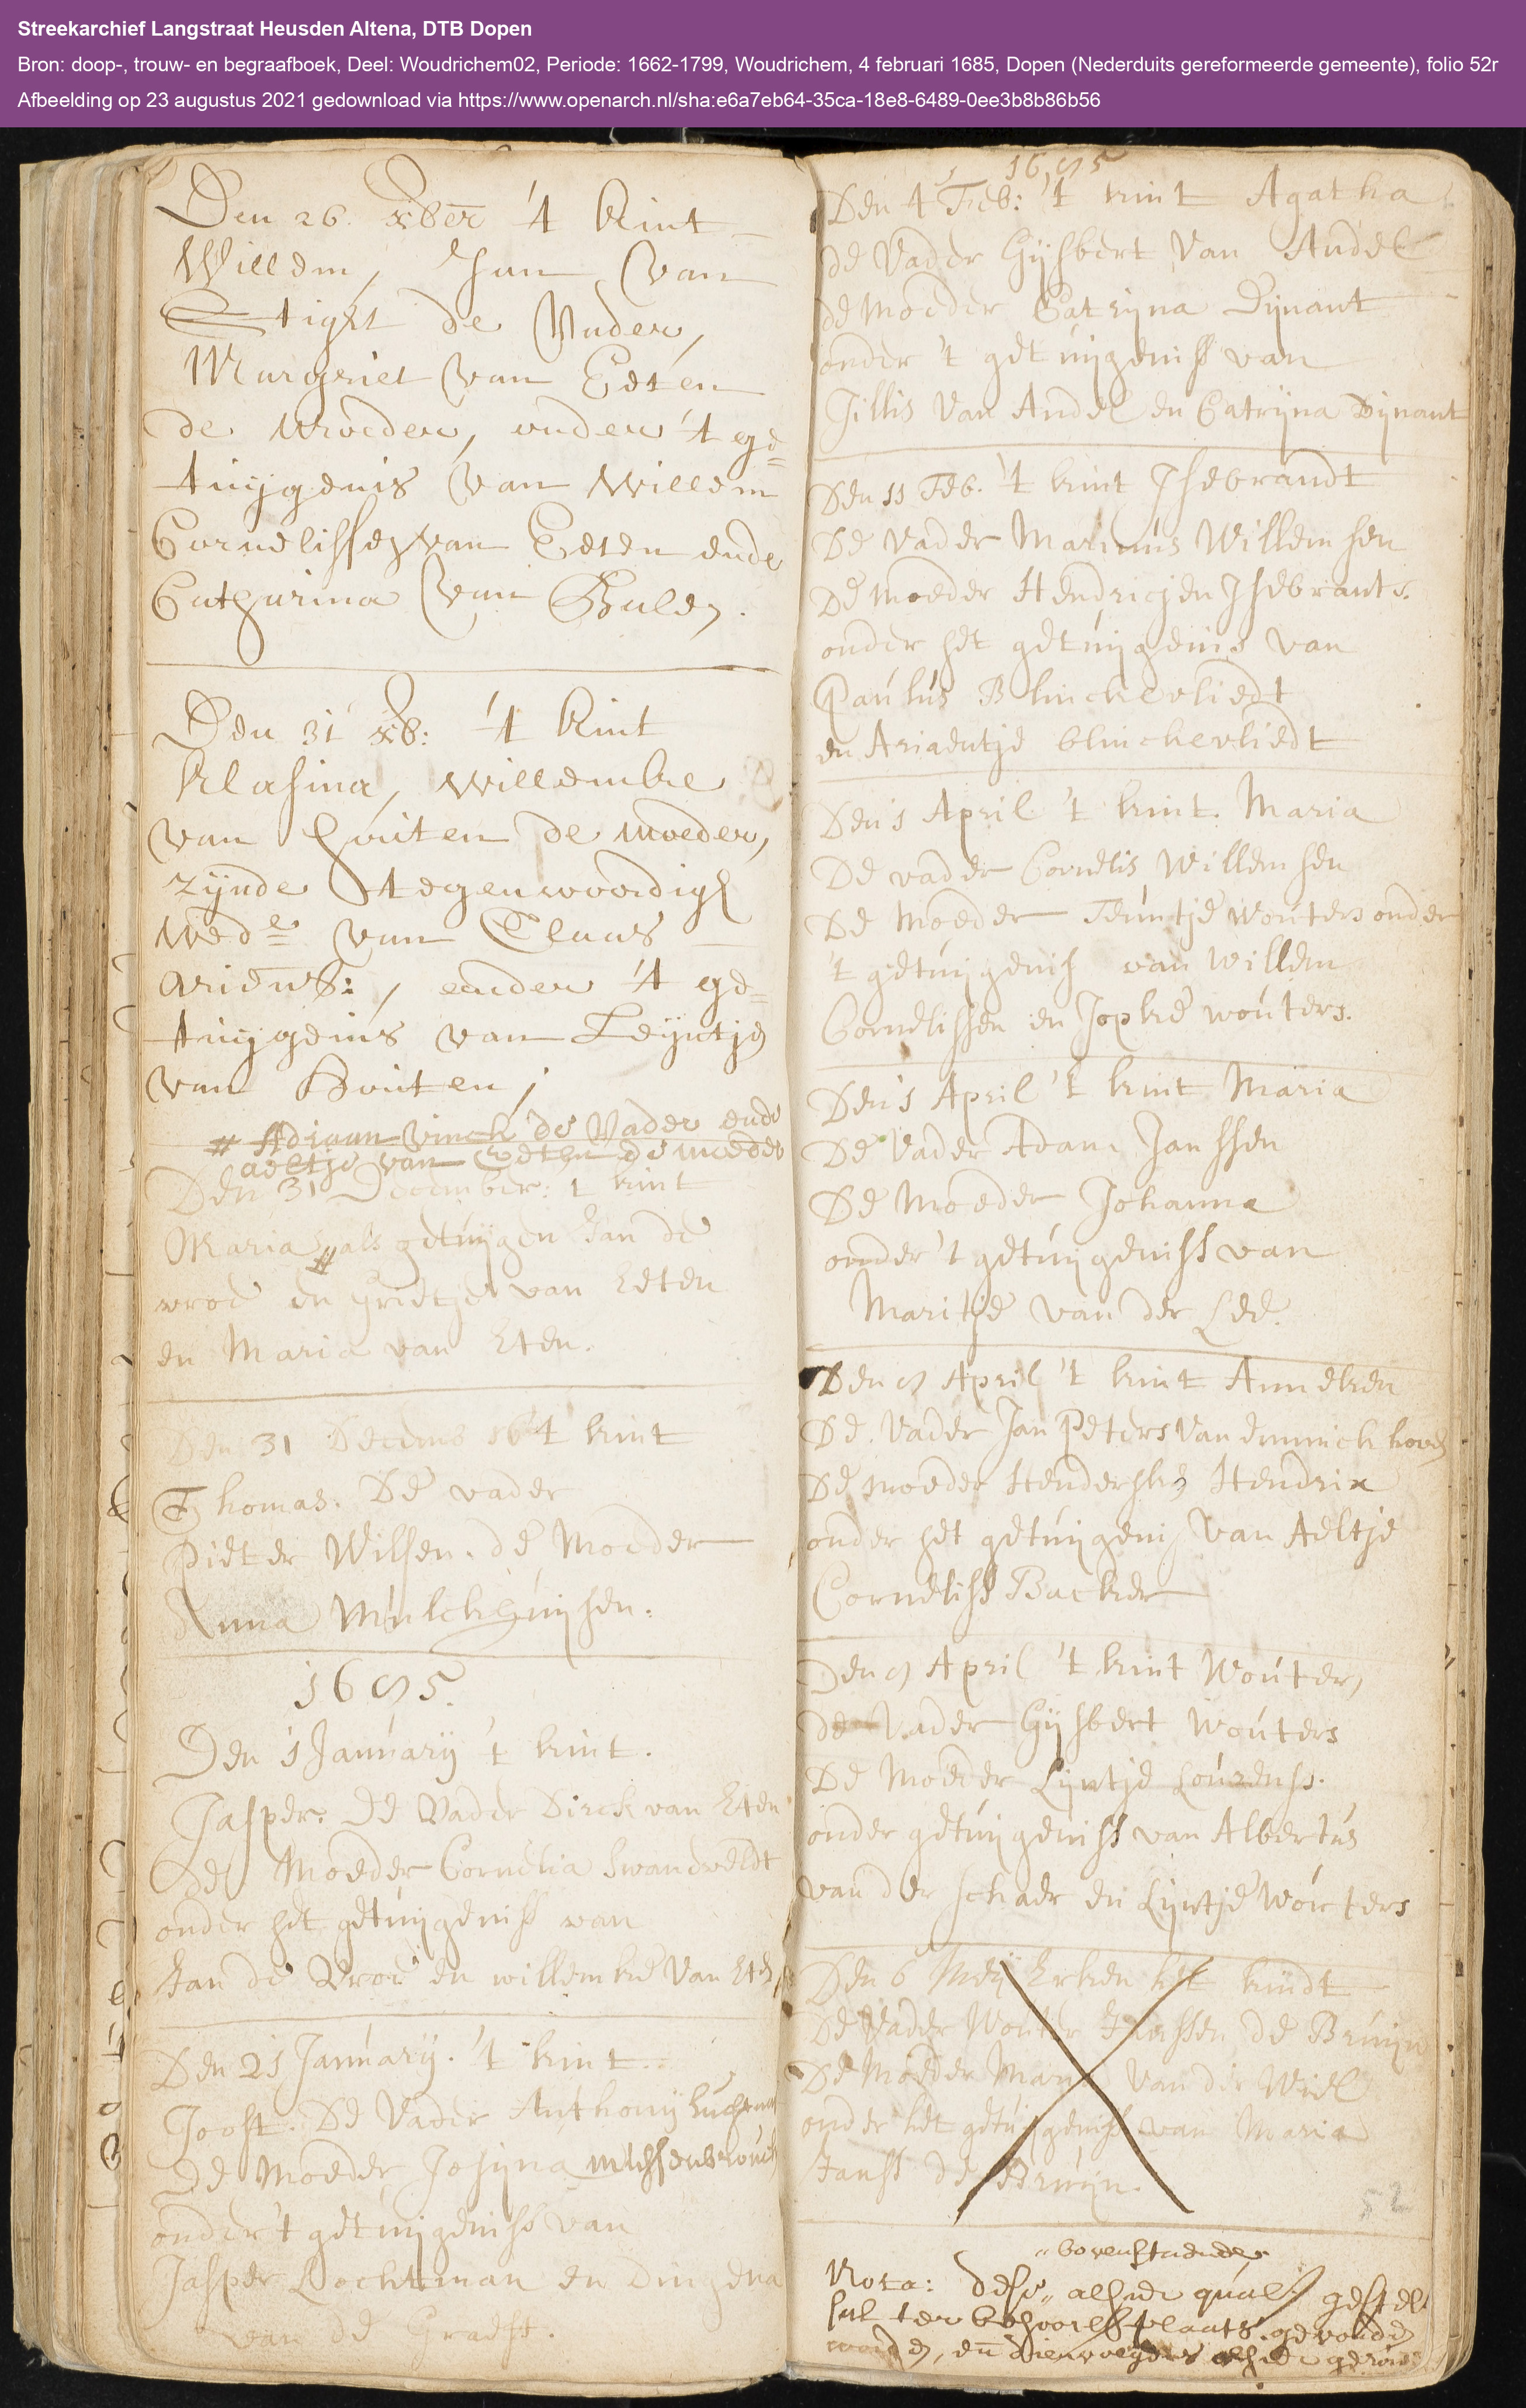 Streekarchief Langstraat Heusden Altena, DTB Dopen
Bron: doop-, trouw- en begraafboek, Deel: Woudrichem02, Periode: 1662-1799, Woudrichem, 4 februari 1685, Dopen (Nederduits gereformeerde gemeente), folio 52r
Afbeelding op 23 augustus 2021 gedownload via https://www.openarch.nl/sha:e6a7eb64-35ca-18e8-6489-0ee3b8b86b56
Den 26. xber 't kint
Willem, Jan van
Stight de Vader,
Margriet van Eeten
de Moeder, onder 't ge=
tuijgenis van Willem
Cornelissen van Eeten ende
Catharina van
Den 31 xb: 't kint
Klasina, Willemke
van Houten de moeder,
zijnde tegenwoordigh
Wede van Claas
ariens:, onder 't ge=
tuijgenis van Leijntje
van Houten;
# Adriaan Vinck de Vader ende
aeltje van Eeten de moeder
Den 31 December: t kint
Maria # als getuijgen Jan de
vroe en grietje van Eeten
en Maria van Eten.
Den 31 Decemb 't kint
Thomas. De vader
Pieter Wilsen. de Moeder
Anna Mulckhuijsen.
1685.
Den 1 January 't kint.
Jasper. De Vader Dirck van Eten
De Moeder Cornelia Swaneveldt
onder het getuijgeniss van
Jan de Vroe en willemke Van Eten
Den 21 January. 't kint.
Joost. De Vader Anthonij
De Moeder Josijna
onder 't getuijgeniss van
Jasper Lochtman en Dingena
van de Graeft.
1685
Den 4 Feb: 't kint Agatha
de Vader Gijsbert Van Andel
de Moeder Catrijna Dijnant
onder 't getuijgeniss van
Jillis Van Andel en Catrijna Dijnant
Den 11 Feb. 't kint Isebrandt
De Vader Marinus Willemsen
De Moeder Hendricjen Isebrants.
onder het getuijgenis van
Paulus Blinckevliedt
en Ariaentje blinckevliedt
Den 1 April 't kint. Maria
De vader Cornelis Willemsen
De Moeder Teuntje Wouters onder
't getuijgenis van Willem
Cornelissen en Jopke wouters.
Den 1 April 't kint Maria
De Vader Adam Janssen
De Moeder Johanna
onder 't getuijgeniss van
Maritje van der Lee.
Den 8 April 't kint Anneken
De Vader Jan Peters Van emmickhoven
De Moeder Hendersken Hendrix
onder het getuijgenis Van Aeltje
Corneliss Backer
Den 8 April 't kint Wouter,
de Vader Gijsbert Wouters
De Moeder Lijntje Lourenss.
onder getuijgeniss van Albertus
van der schaer en Lijntje Wouters
Den 6 Meij Erken het kindt
De Vader Wouter Janssen de Bruijn
De Moeder Maria Van der Wiel
onder het getuijgeniss van Maria
Janss de Bruijn.
52
"bovenstaende
Nota: dese" alhier qualijk gestelt
sal ter behoorlyke plaats gevonden
worden, en dienvolgens alhier